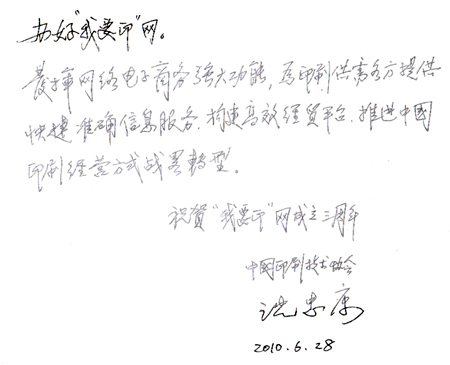 办好"我要印"网。
发挥网络电子商务强大功能,为印刷供需各方提供
快捷准确信息服务,构建高效经贸平台,推进中国
印刷经营方式战略转型。
祝贺"我要印"网成立三周年
中国印刷技术协会
2010.6.28